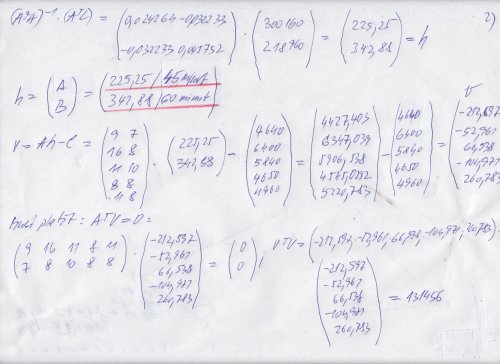 2)
(AᵀA)⁻¹·(AᵀL) = (0,024264 -0,032233 / -0,032233 0,045752) · (300160 / 218960) = (225,25 / 342,88) = h
h = (A / B) = (225,25 / 45 minut / 342,88 / 60 minut)
V = Ah - L = (9 7 / 16 8 / 11 10 / 8 8 / 11 8) · (225,25 / 342,88) - (4640 / 6400 / 5840 / 4650 / 4960) = (4427,403 / 6347,039 / 5906,538 / 4545,0 / 5220,783) - (4640 / 6400 / 5840 / 4650 / 4960) = V (-212,597 / -52,961 / 66,538 / -104,971 / 260,783)
Musí platiť: AᵀV = 0:
(9 16 11 8 11 / 7 8 10 8 8) · (-212,597 / -52,967 / 66,538 / -104,971 / 260,783) = (0 / 0), VᵀV = (-212,597, -52,961, 66,538, -104,971, 260,783) ·
(-212,592 / -52,967 / 66,538 / -104,971 / 260,783) = 131456